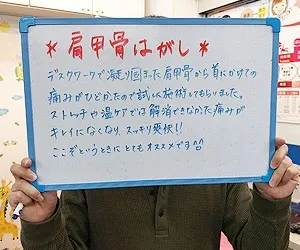 * 肩甲骨はがし *
デスクワークで凝り固まった肩甲骨から首にかけての
痛みがひどかったので試しに施術してもらいました。
ストレッチや温ケアでは解消できなかった痛みが
キレイになくなり、スッキリ爽快!!
ここぞというときにとてもオススメです